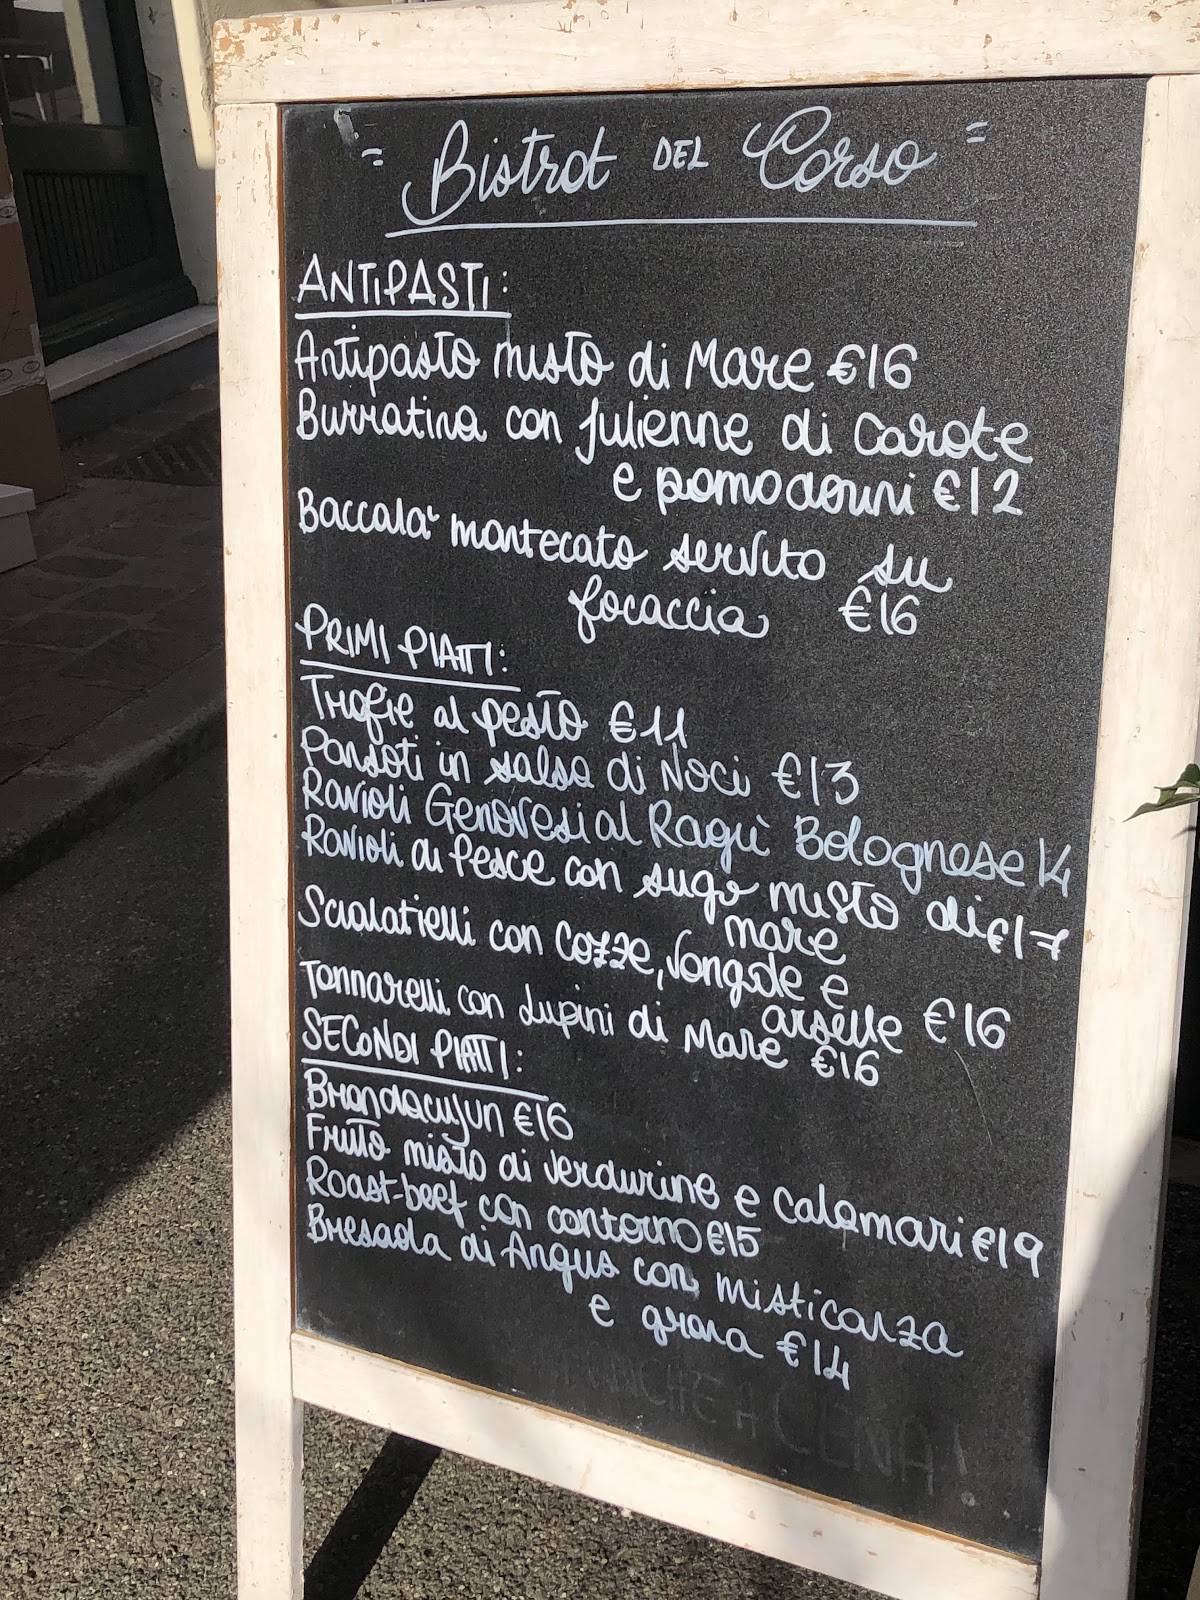 " Bistrot DEL Corso "
ANTIPASTI:
Antipasto misto di Mare €16
Burratina con julienne di carote
e pomodorini €12
Baccala' mantecato servito su
focaccia €16
PRIMI PIATTI:
Trofie al pesto €11
Pansoti in salsa di Noci €13
Ravioli Genovesi al Ragù Bolognese 14
Ravioli di Pesce con sugo misto di €17
mare
Scialatielli con Cozze, Vongole e
arselle €16
Tonnarelli con Lupini di Mare €16
SECONDI PIATTI:
Brandacujun €16
Fritto misto di Verdurine e Calamari €19
Roast-beef con contorno €15
Bresaola di Angus con misticanza
e grana €14
ANCHE A CENA!